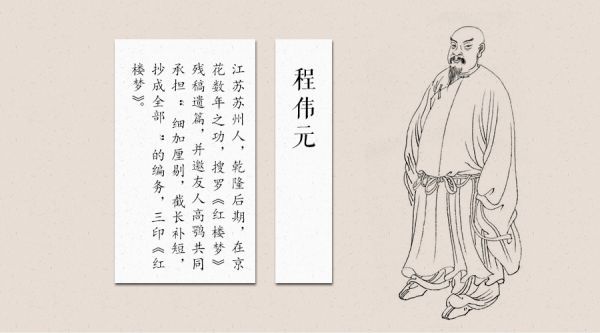 程伟元
江苏苏州人，乾隆后期，在京
花数年之功，搜罗《红楼梦》
残稿遗篇，并邀友人高鹗共同
承担：细加厘剔，截长补短，
抄成全部：的编务，三印《红
楼梦》。